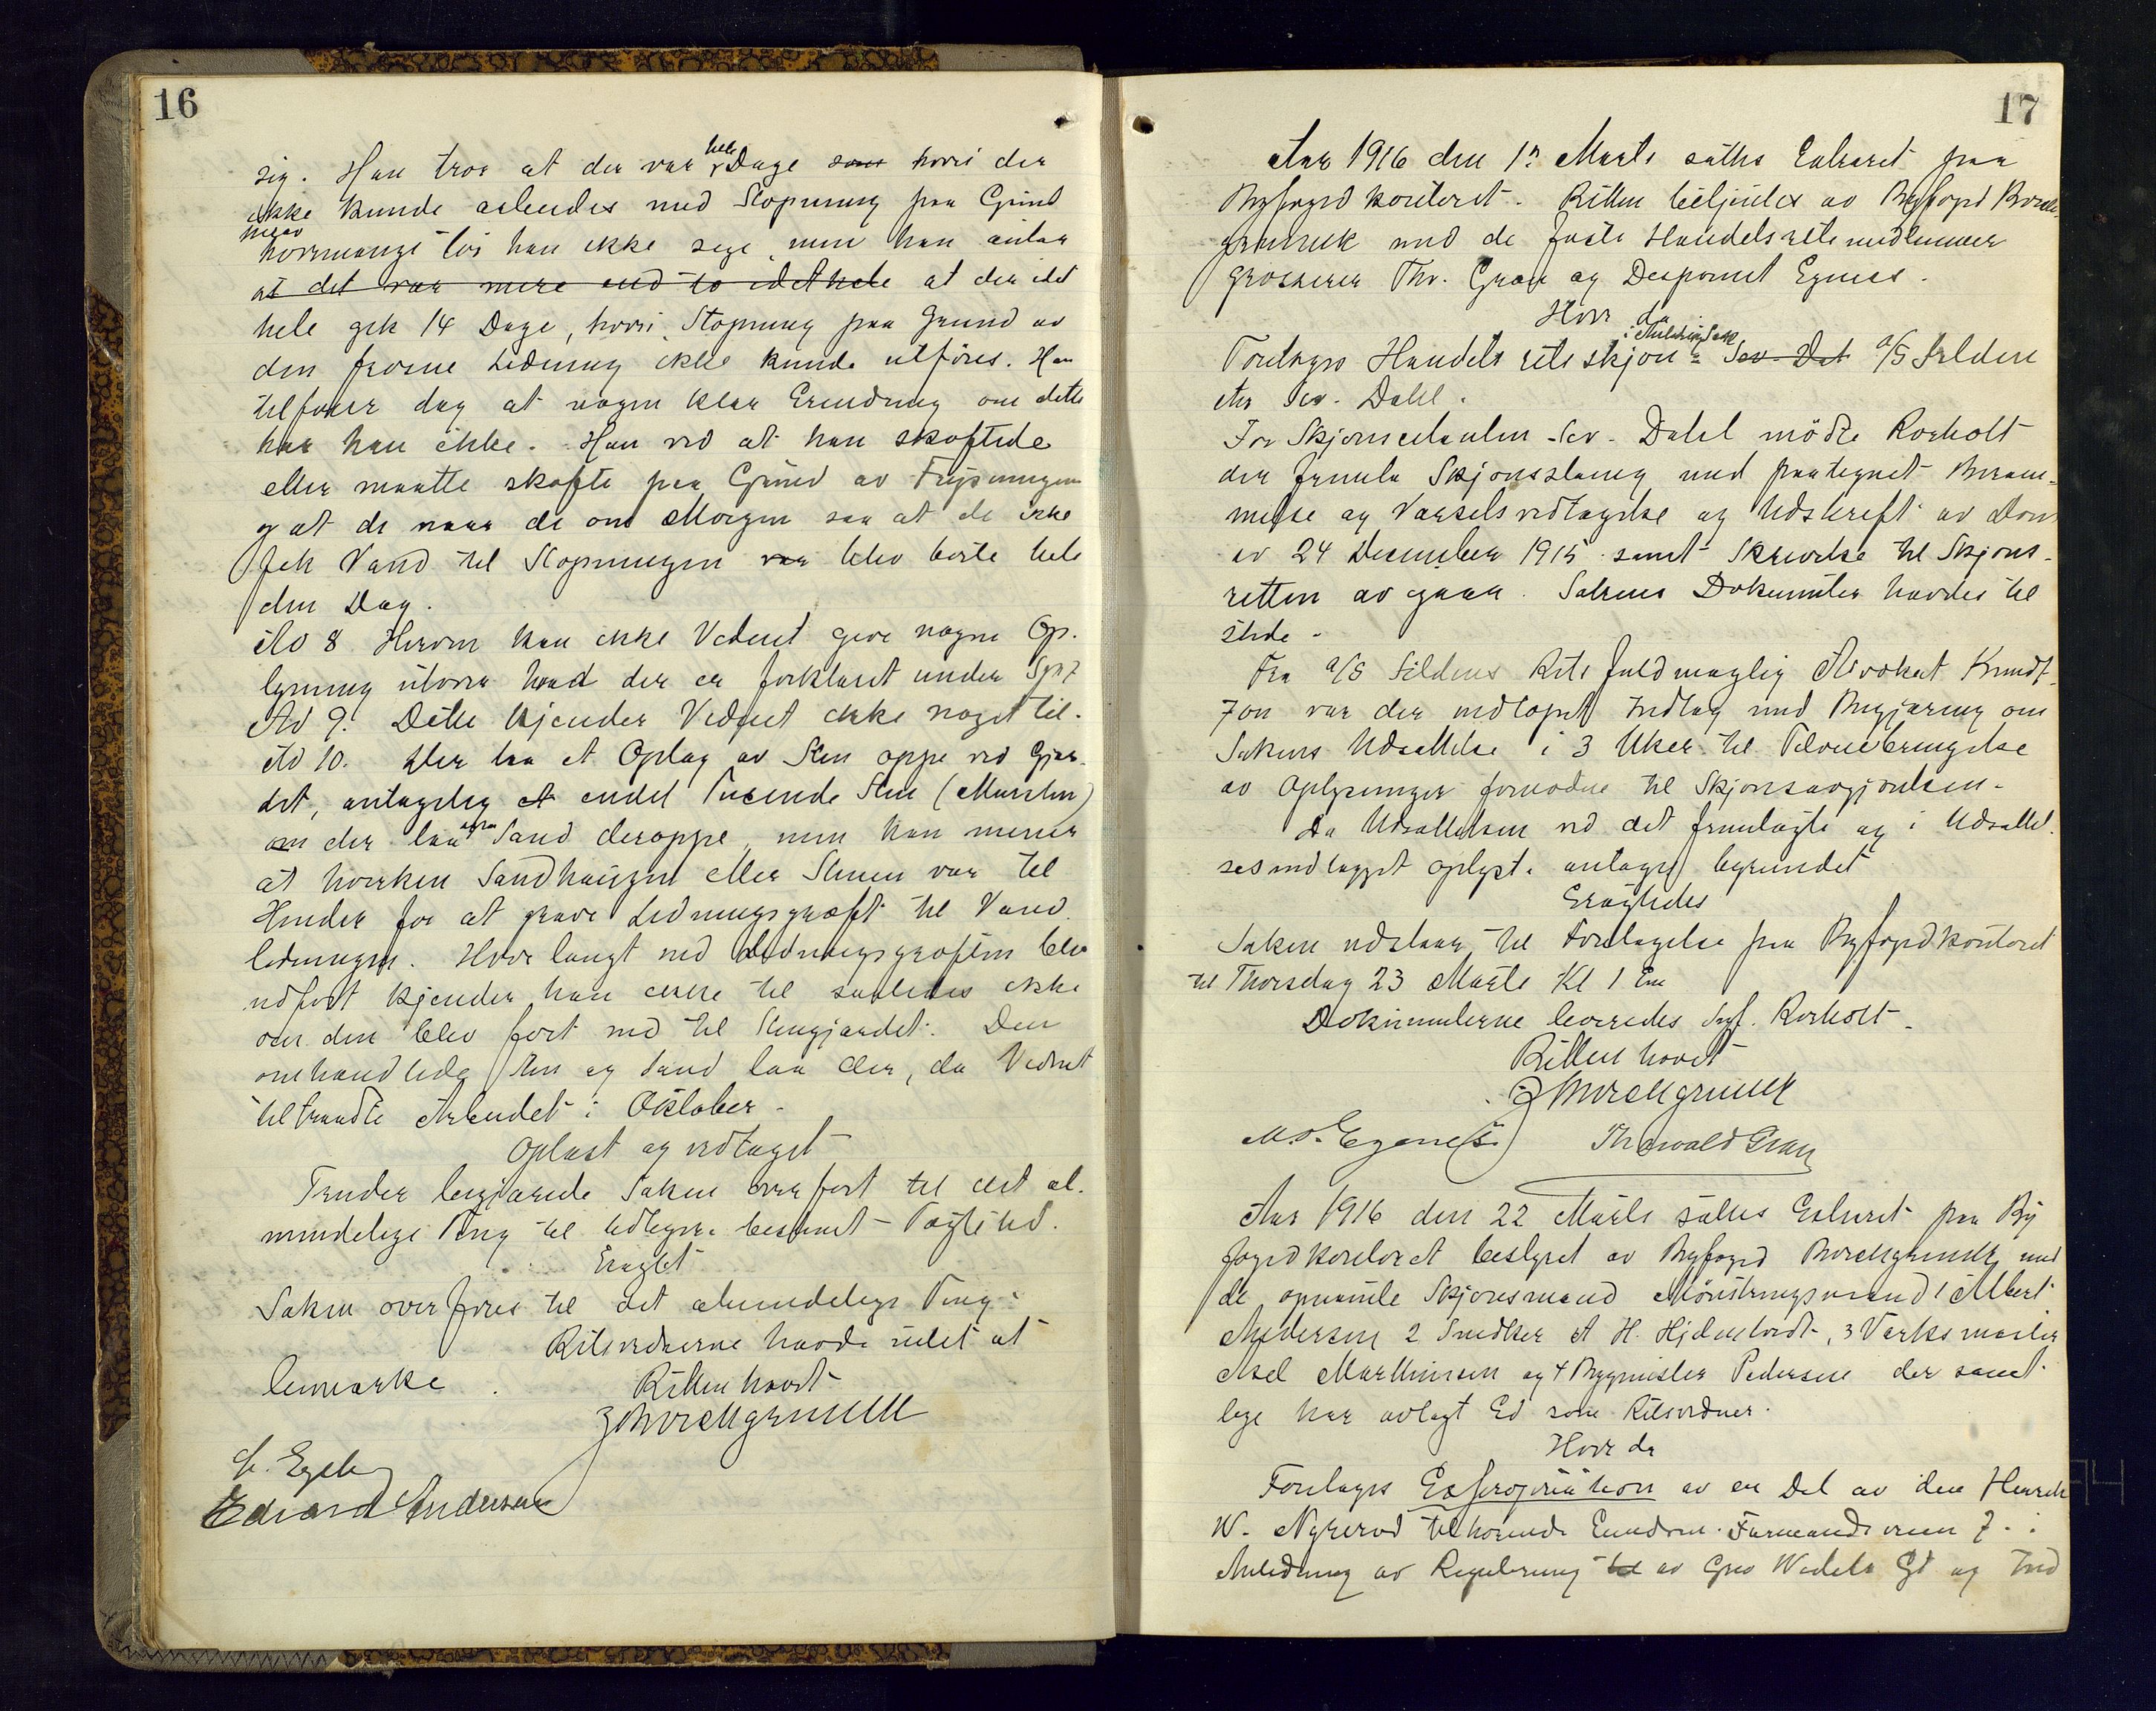 16
sig. Han tror at der var hele Dage som hvori der
ikke kunde arbeides med Stopning paa Grund
herav
hvormange tør han ikke sige, men han antar
at det var mere end to idethele at der idet
hele gik 14 Dage, hvori Stopning paa Grund av
den frosne Ledning ikke kunde utføres. Han
tilføier dog at nogen klar Erindring om dette
har han ikke. Han ved at han skoftede
eller maatte skofte paa Grund av Frysningen
og at de naar de om Morgen saa at de ikke
fik Vand til Stopningen var blev borte hele
den Dag.
Ad 8 Herom kan ikke Vidnet give nogen Op-
lysning utover hvad der er forklaret under Sp 7
Ad 9. Dette kjender Vidnet ikke noget til.
Ad 10. Der laa et Oplag av Sten oppe ved Gjær-
det, antagelig et endel Tusende Sten (Mursten)
om der laa ogsaa Sand deroppe, men han mener
at hverken Sandhaugen eller Stenen var til
Hinder for at grave Ledningsgrøft til Vand-
ledningen. Hvor langt ned Ledningsgrøften blev
ndført kjender han ikke til saaledes ikke
om den blev ført ned til Stengjærdet. Den
omhandlede Sten og Sand laa der, da Vidnet
tiltraadte Arbeidet i Oktober.
Oplæst og vedtaget
Truder begjærede Saken overført til det al-
mindelige Ting til Udlegsr. bestemt Tægtetid.
Eragtet
Saken overføres til det almindelige Ting
Retsvidnerne havde intet at
bemærke. Retten hævet
J Borchgrevink
L. Egeb
Edvard Andersen
17
Aar 1916 den 1n Marts sattes Extraret paa
Byfogdkontoret. Retten betjentes av Byfogd Borch-
grevink med de faste Handelsretsmedlemmer
Grosserer Thv. Gran og Disponent Egenes.
Hvor da
Foretages Handelsretsskjøn i Anledning Sak Sev. Det A/S Silden
ctr Sev. Dahl.
For Skjønscitanten Sev. Dahl mødte Rorholt
der fremla Skjønsstevning med paategnet Beram-
melse og Varselsvedtagelse og Udskrift av Dom
av 24 December 1915 samt Skrivelse til Skjøns-
retten av igaar. Sakens Dokumenter havdes til
stede.
Fra A/S Sildens Rets fuldmægtig Advokat Knudt-
zon var der indløpet Indlæg med Begjæring om
Sakens Udsættelse i 3 Uker til Tilveiebringelse
av Oplysninger fornødne til Skjønsavgjørelsen.
Da Udsættelsen ved det fremlagte og i Udsættel-
sesindlægget oplyste antages begrundet
Eragtedes
Saken udstaar til Foretagelse paa Byfogdkontoret
til Thorsdag 23 Marts Kl 1 Em
Dokumenterne leveredes Sagf. Rorholt.
Retten hævet
J Borchgrevink
M. S. Egenes Thorvald Gran
Aar 1916 den 22 Marts sattes Extraret paa By
fogdkontoret bestyret av Byfogd Borchgrevink med
de opnævnte Skjønsmænd Mønstringsmand 1 Albert
Andersen 2 Snedker A H. Hjelmtvedt, 3 Verksmester
Axel Marthinsen og 4 Bygmester Pedersen der samt-
lige har avlagt Ed som Retsvidner.
Hvor da
Foretages Expropriation av en Del av den Henrik
W. Nyerød tilhørende Eiendom Farmandsveien 7 i
Anledning av Regulering til av Grev Wedels Gt og Ind